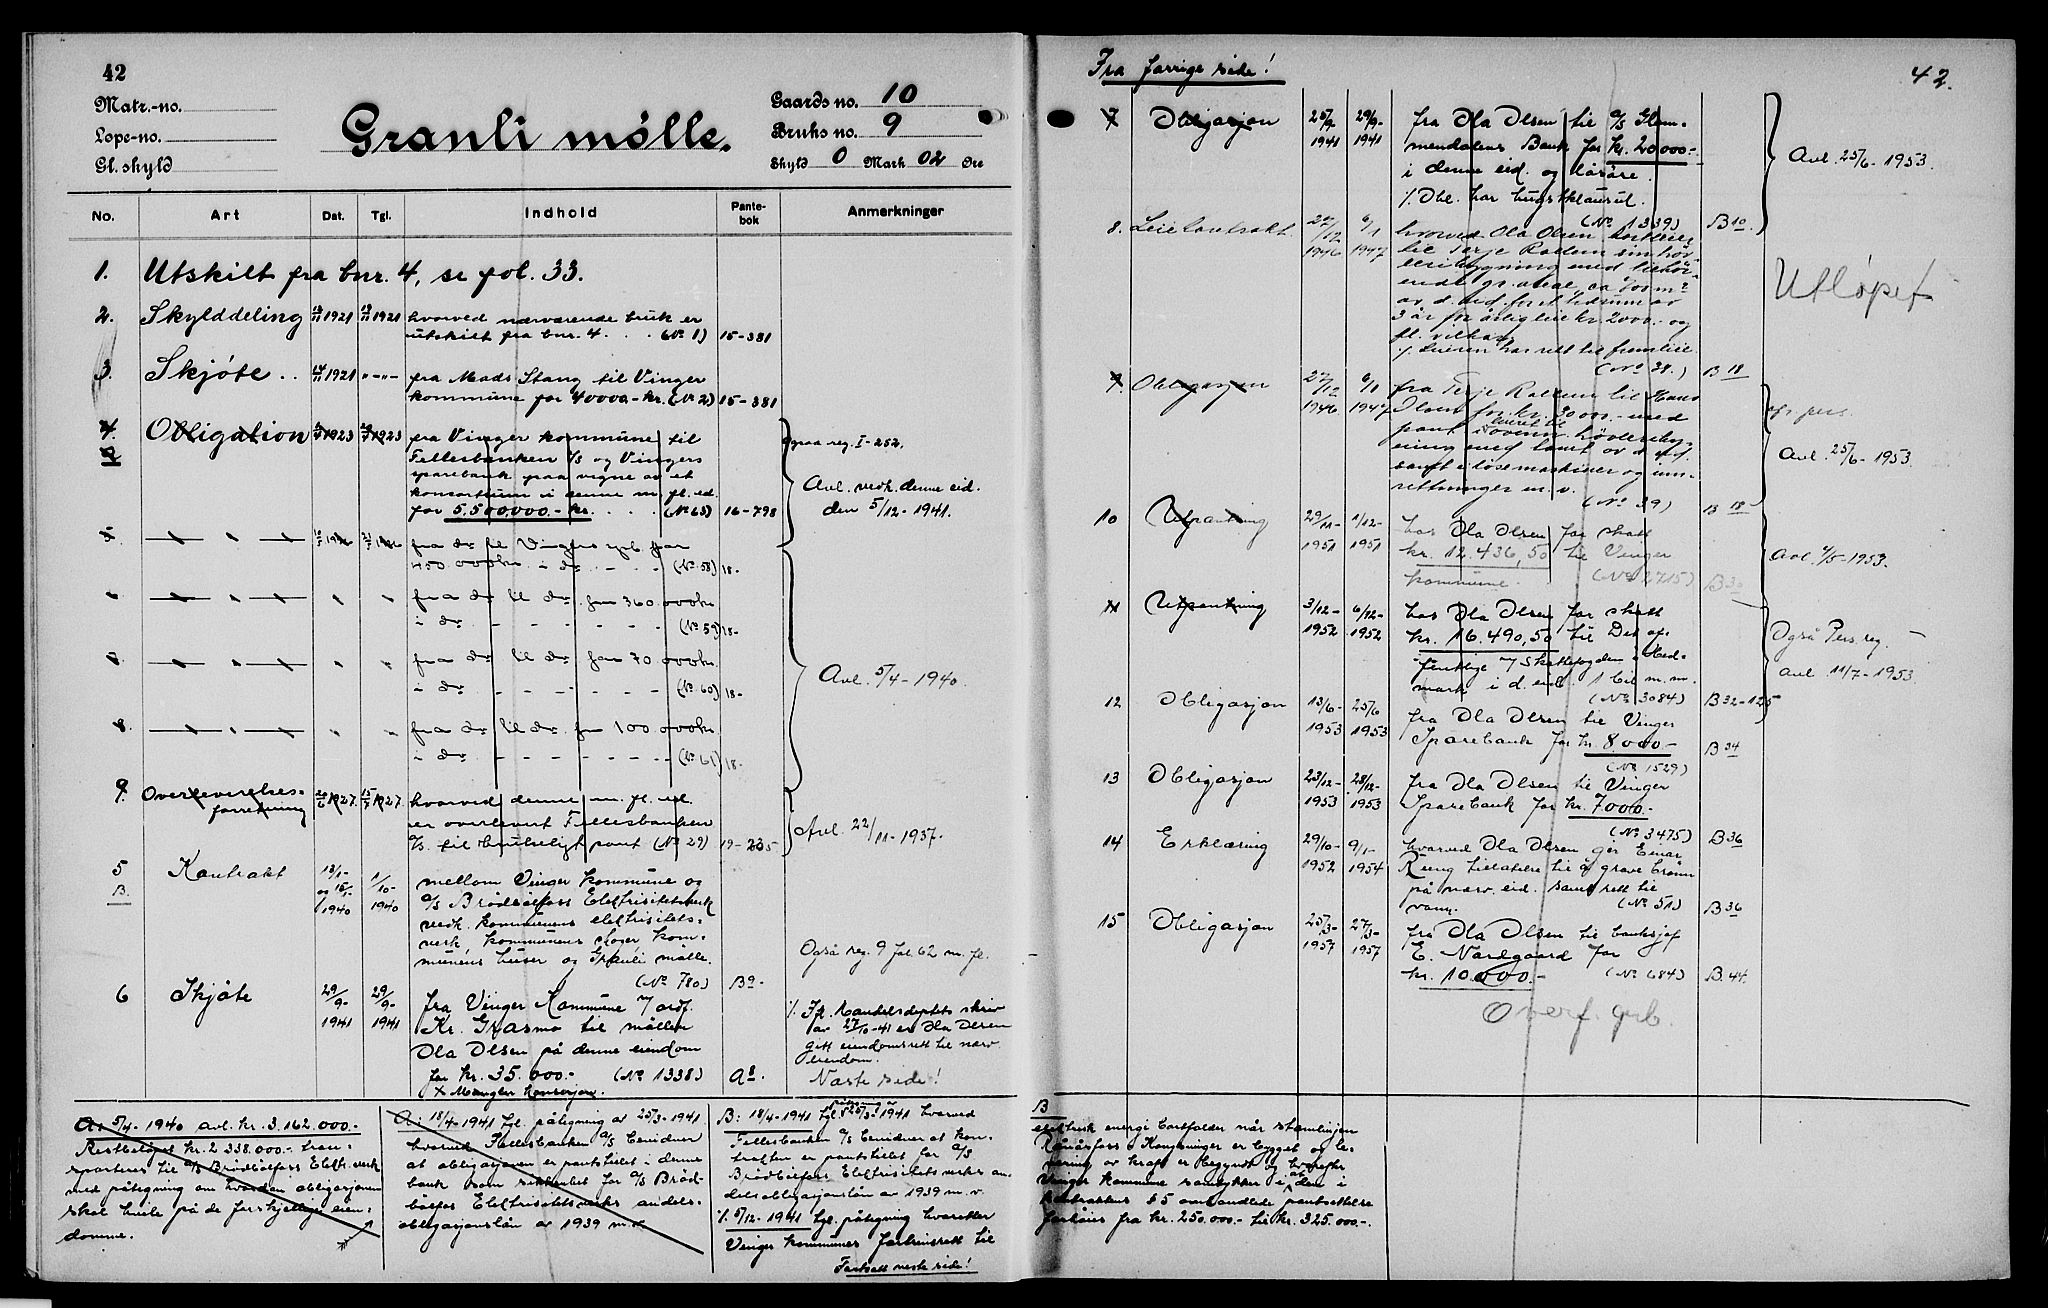 42
Matr.-no.
Lope-no.
Gl. skyld
Granli mølle.
Gaards no. 10
Bruks no. 9
Skyld 0 Mark 02 Øre
No. Art Dat. Tgl. Indhold Pante-bok Anmerkninger
1. Utskilt fra bnr. 4, se fol. 33.
2. Skylddeling 1921 1921 hvorved nærværende bruk er
utskilt fra bnr. 4 . . . (No 1) 15-381
3. Skjøte . . 1921 "-"- fra Mads Stang til Vinger
kommune for 40000.- kr. (No 2) 15-381
4. Obligation 1923 1923 fra Vinger kommune til
Fellesbanken A/S og Vingers
sparebank paa vegne av et
konsortium i denne m. fl. ed.
for 5.500000.- kr. . . . (No 63) 16-798
ogsaa reg. I-252.
Avl. vedk. denne eid.
den 5/12-1941.
5. fra do til Vingers spb. for
450 000 kr. i do - - - (No 58) 18-
fra do til do for 360 000 kr
i do - - - - - - (No 59) 18-
fra do til do for 70 000 kr.
i do - - - - - - (No 60) 18-
8. fra do til do for 100 000 kr
i do - - - - - - (No 61) 18-
Avl. 5/4-1940.
9. Overleverelses-
forretning 1927 1927. hvorved denne m. fl. ed.
er overlevert Fellesbanken
A/S. til brukeligt pant (No 29) 19-235
Avl. 22/11-1937.
5 Kontrakt 13/1- og 15/1- 1940 1/10- 1940 mellom Vinger kommune og
B. A/S Brødbølfoss Elektrisitetsverk
vedk. kommunens elektrisitets-
verk, kommunens skoger, kom-
munens huser og Granli mølle.
(No 780) B9-
Også reg. 9 fol. 62 m. fl.
6 Skjøte 29/9- 1941 29/9- 1941 fra Vinger Kommune v/ ordf.
Kr. Grasmo til møller
Ola Olsen på denne eiendom
for kr. 35.000.- (No 1338) A8.
+ Mangler konsesjon.
/. Fl. Handelsdeptets skriv
av 27/10-41 er Ola Olsen
gitt eiendomsrett til nærv.
eiendom.
Næste side!
A: 5/4-1940 avl. kr. 3.162.000.-
Restbeløpet kr. 2 338.000.- tran-
sporteres til A/S Brødbølfoss Elektr.verk
med påtegning om hvordan obligasjonen
skal hvile på de forskjellige eien-
domme.
A: 18/4-1941 tgl. påtegning at 25/3-1941
hvorved Fellesbanken A/S bevidner
at obligasjonen er pantstillet i denne
bank som sikkerhet for A/S Brød-
bølfos Elektrisitetsverks andels-
obligasjonslån av 1939 m.v.
B: 18/4-1941 tgl. påtegning av 25/3-1941 hvorved
Fellesbanken A/S bevidner at kon-
trakten er pantstillet for A/S
Brødbølfoss Elektrisitetsverks an-
delsobligasjonslån av 1939 m. v.
/. 5/12-1941 tgl. påtegning hvoretter
Vinger kommunes fortrinsrett til
Fortsatt neste side!
Fra forrige side!
42.
7 Obligasjon 25/9- 1941 29/9- 1941 fra Ola Olsen til A/S Glom-
mendalens Bank for kr. 20000.-
i denne eid. og løsøre.
/. Obl. har hugstklausul.
(No 1339) B10.
Avl. 25/6-1953.
8. Leiekontrakt. 27/12 1946 6/1 1947 hvorved Ola Olsen bortleier
til Terje Rolleim sin høv-
leribygning med tilhør-
ende gr. areal, ca 700 m2
av d. eid. for et tidsrum av
3 år for årlig leie kr. 2000.- og
fl. vilkår
/. Leieren har rett til fremleie.
(No 38.) B18
Utløpet
9. Obligasjon 27/12 1946 6/1 1947 fra Terje Rolleim til Hans
Olsen for kr. 30000.- med
pant i ovenn. høvleribyg-
ning med tomt av d. eid.
samt i løse maskiner og inn-
retninger m. v.
(No 39) B 18
også pers.
Avl. 25/6-1953.
10 Utpantning 29/11- 1951 1/12- 1951 hos Ola Olsen for skatt
kr. 12.436,50 til Vinger
kommune. (No 2715) B30
Avl. 4/5-1953.
11 Utpantning 3/12- 1952 6/12- 1952 hos Ola Olsen for skatt
kr. 16.490,50 til Det of-
fentlige v/ Skattefogden i Hed-
mark i d. eid. 1 bil m. m.
(No 3084) B32-125
Også Pers. reg.
avl. 11/7-1953.
12 Obligasjon 13/6- 1953 25/6 1953 fra Ola Olsen til Vinger
Sparebank for kr. 8000.- B34
(No 1529)
13 Obligasjon 23/12- 1953 28/12- 1953 fra Ola Olsen til Vinger
Sparebank for kr. 7000.-
(No 3475) B36
14 Erklæring 29/10- 1952 9/1- 1954 hvorved Ola Olsen gir Einar
Reing tillatelse til å grave brønn
på nærv. eid. samt rett til
vann. (No 51) B36
15 Obligasjon 25/3- 1957 27/3- 1957 fra Ola Olsen til banksjef
E. Nordgaard for
kr. 10.000.- (No 684) B.44.
Overf. grb.
B
elektrisk energi bortfaller når stamlinjen
Rånåsfoss - Kongsvinger er bygget og le-
vering av kraft er begyndt og hvorefter
Vinger kommune samtykker i at den i
kontraktens § 5 omhandlede pantsettelse
forhøies fra kr. 250.000.- til kr. 325.000.-.